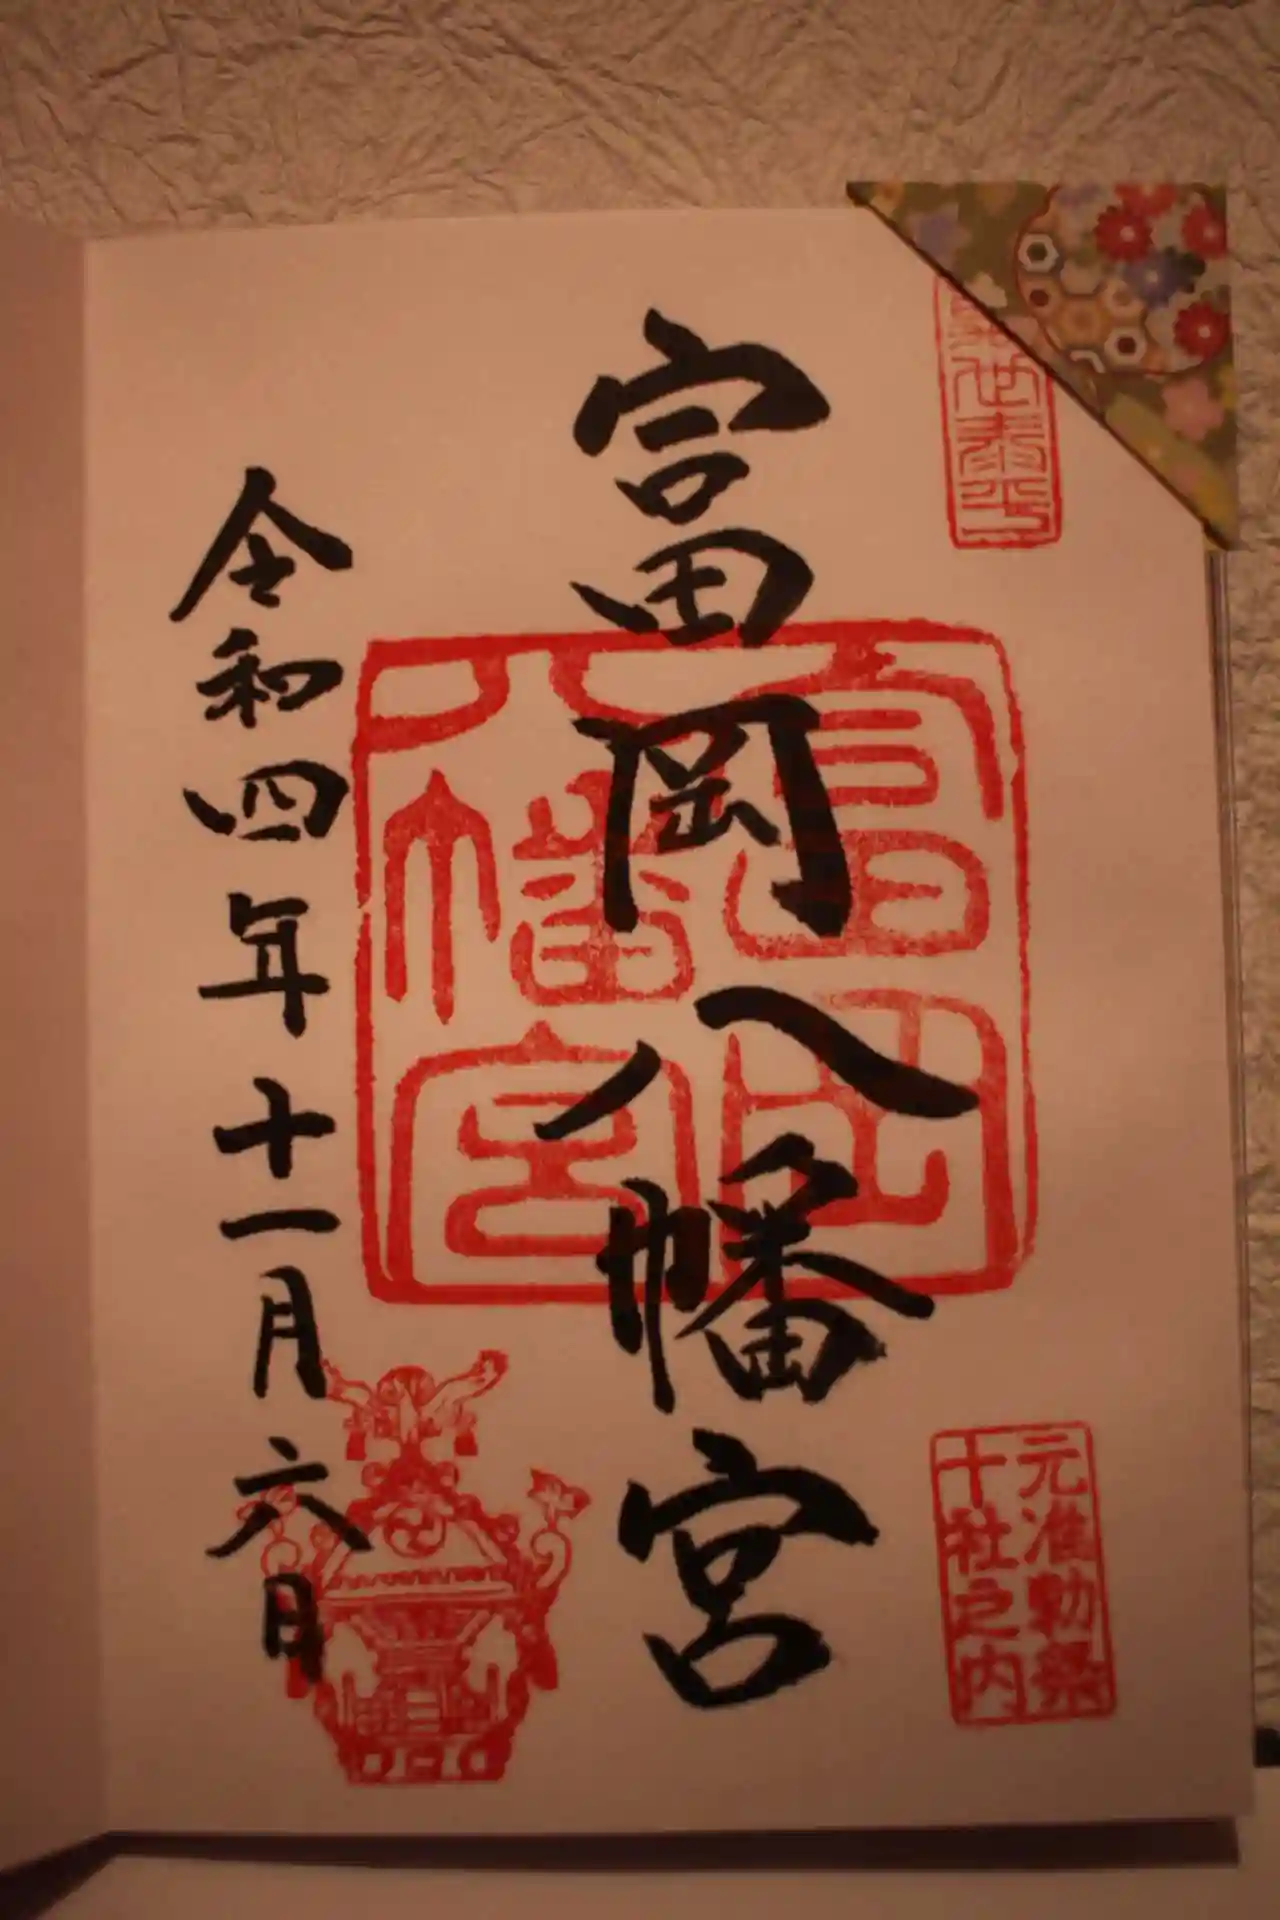 富岡八幡宮
富岡
八幡宮
元准勅祭
十社之内
令和四年十一月六日